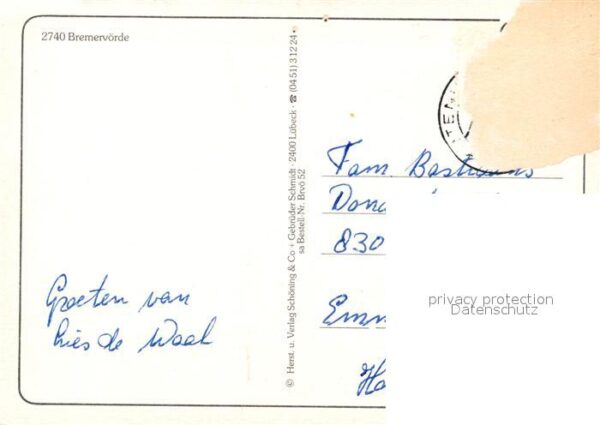 2740 Bremervörde
© Herst. u. Verlag Schöning & Co + Gebrüder Schmidt · 2400 Lübeck · ☎ (0451) 31224
sa Bestell-Nr. Brvö 52
TEN
Fam Bastiaans
Don
830
Emm
Ho
Groeten van
Lies de Waal
privacy protection
Datenschutz